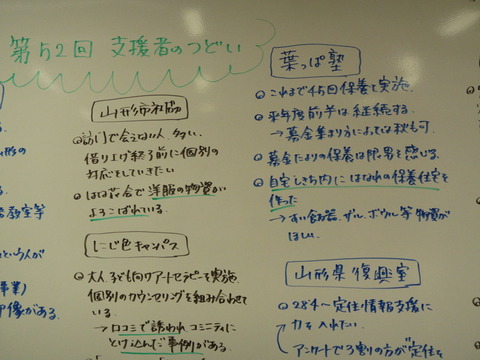 第52回 支援者のつどい
山形市社協
訪問で会えない人 多い。
借り上げ終了前に個別の
対応をしていきたい
会で洋服の物資が
よろこばれている。
にじ色キャンバス
大人、子ども向けアートセラピーを実施
個別のカウンセリングを組み合わせて
いる。
→口コミで誘われ コミュニティに
とけ込んだ事例がある。
葉っぱ塾
これまで45回保養を実施
来年度前半は継続する。
→募金集まり方によっては秋も可。
募金だよりの保養は限界を感じる。
自宅しき地内にはなれの保養住宅を
作った
→すい飯器、ザル、ボウル等 物資が
ほしい。
山形県復興室
28.4〜 定住情報支援に
力を入れたい。
アンケートで3割の方が定住を
形の
教室等
という人が
事業)
印象がある。